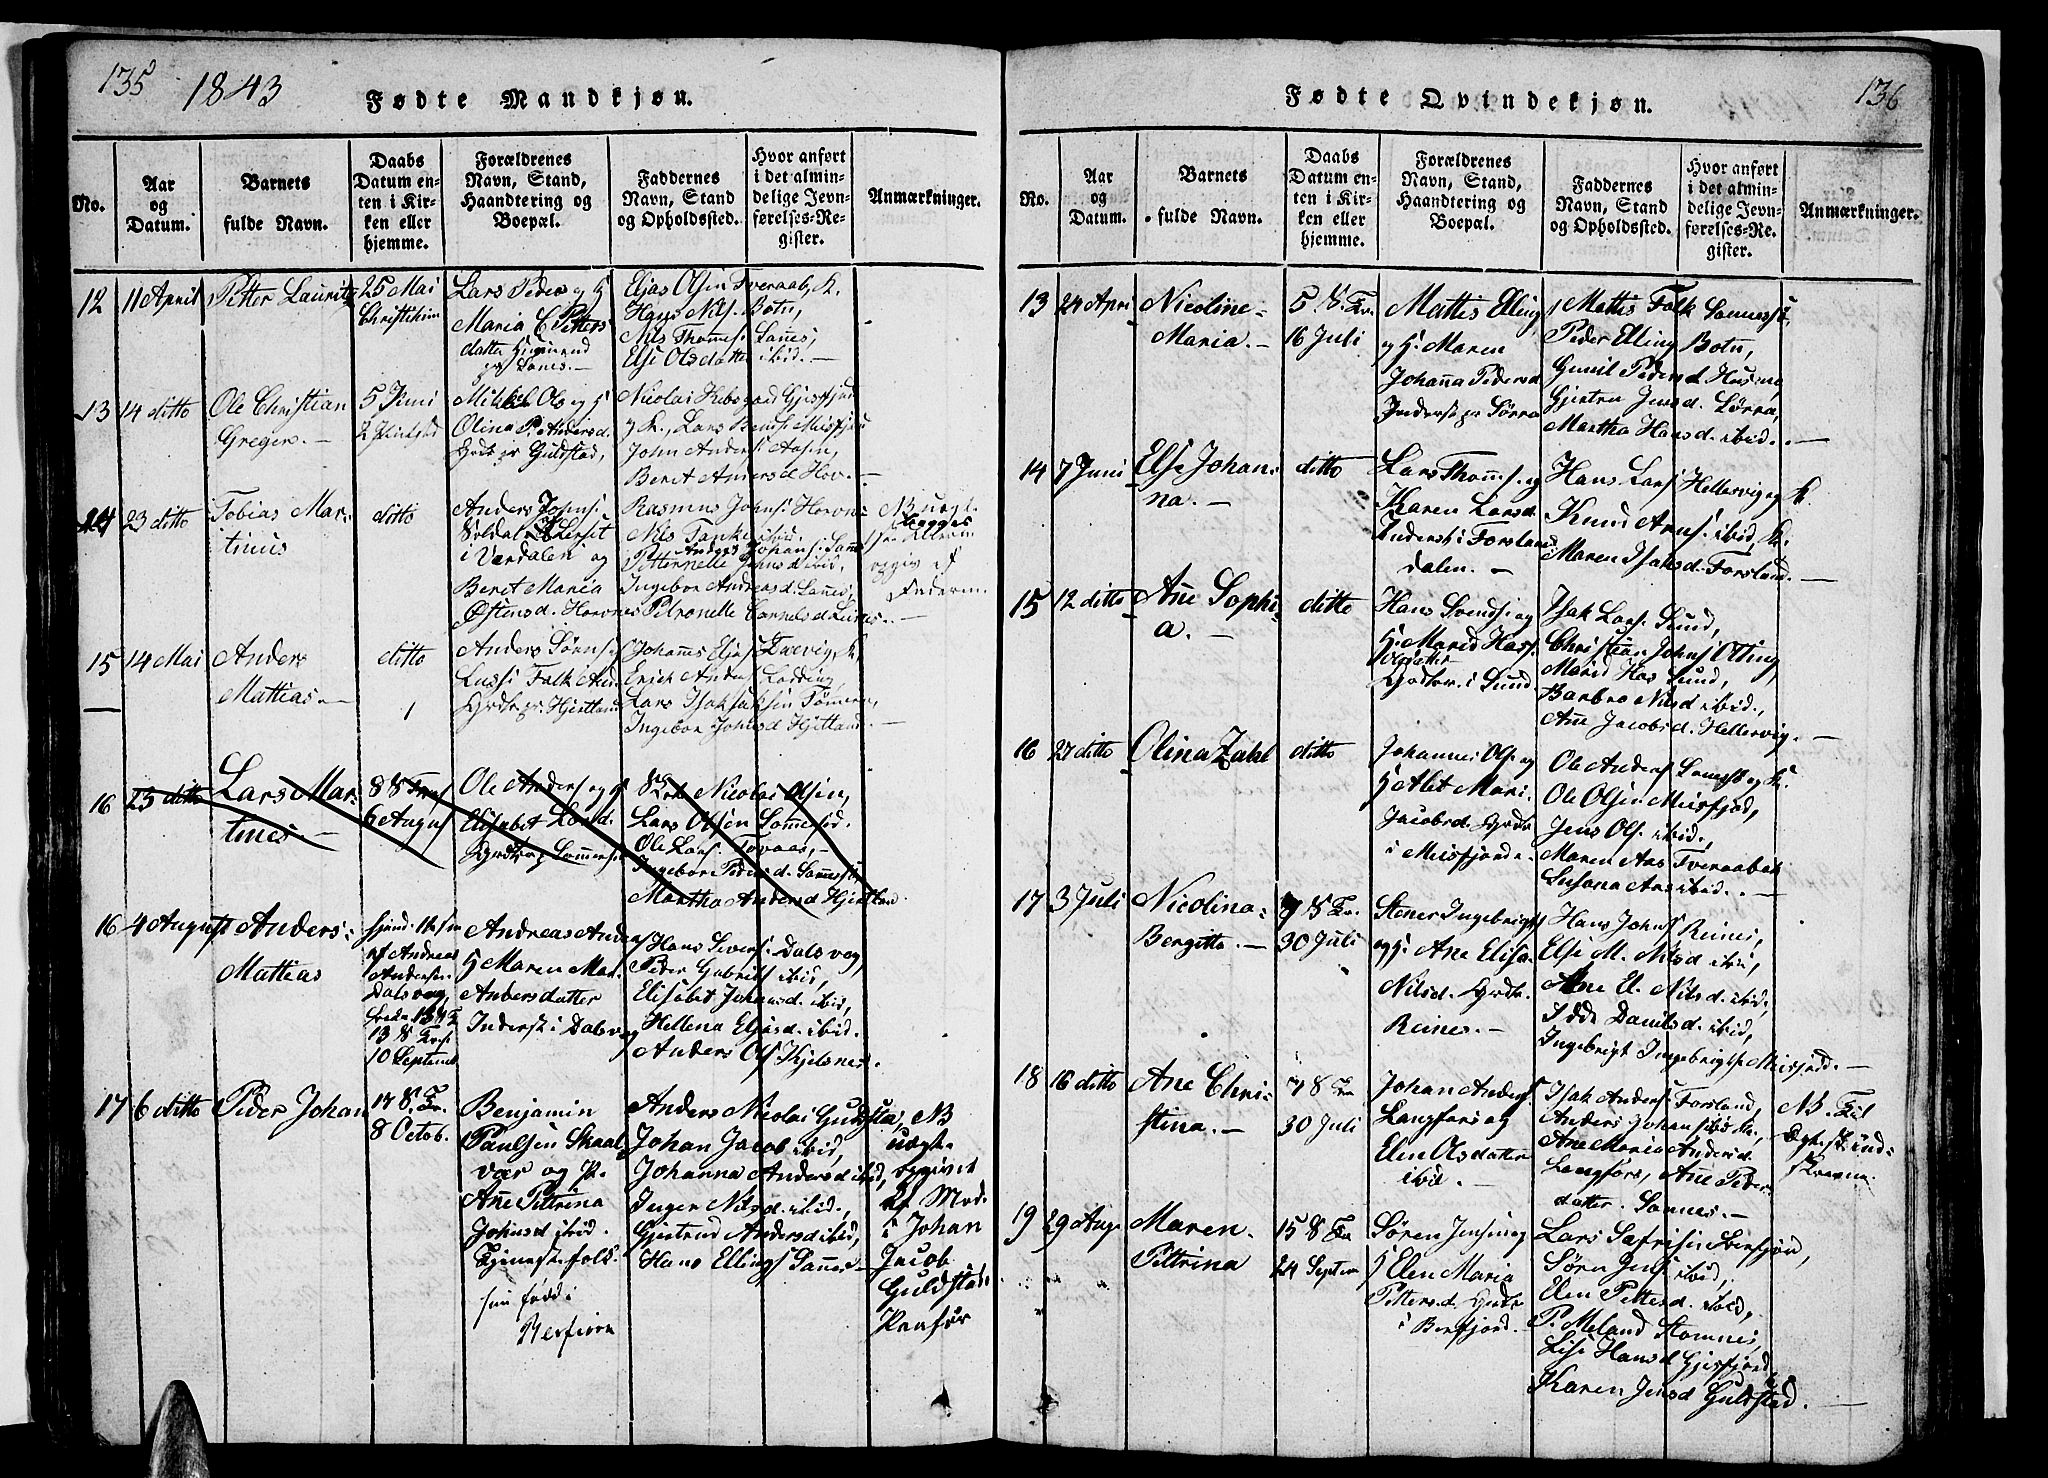 135 1843 Fødte Mandkjøn.
No.
Aar
og
Datum.
Barnets
fulde Navn.
Daabs
Datum en-
ten i Kir-
ken eller
hjemme.
Forældrenes
Navn, Stand,
Haandtering og
Boepæl.
Faddernes
Navn, Stand
og Opholdssted.
Hvor anført
i det almin-
delige Jevn-
førelses-Re-
gister.
Anmærkninger.
12 11 April Petter Lauritz
25 Mai
Christihim
Lars Peders og H
Maria C Petters
datter
pr Sanes. —
Eljas Olsen Tveraab, K.
Hans Nils. Botn,
Nils Thomes. Sannes,
Else Olsdatter ibid. —
13 14 ditto Ole Christian
Greger. —
5 Juni
2 Pintsd
Mikkel Ols og H
Olina P. Andersd.
Grdb pr Guldstad,
Nicolai Gjisfjord
og K., Lars Bends. Misfjord
John Anders. Aasen,
Beret Andersd Hov. —
14 23 ditto Tobias Mar-
tinus
ditto
Anders Johns.
Soldat
i Værdalen og
Beret Maria
Østensd. Horvnes
Rasmus Johns. Horvn
Nils Tanke ibid.
Anders Johans. Sann
Petternelle Johnsd ibid,
Ingebor Andreasd. Sannes,
Petronelle Cornelsd Lunes. —
NB uægt.
opgiv af
Faderen.
15 14 Mai Anders
Mattias. —
ditto
Anders Sørns.
Lussi Falk And.
Grdb pr. Hjertland
Johanes Eljas. K,
Erich Anders. Lodding,
Lars Isaksen Tømern,
Ingebor Johnsd Hjertland. —
16 23 ditto Lars Mar-
tines. —
8 S Tref
6 August
Ole Anders. og H
Elisabet Larsd.
Grdb pr Sommerset
Nicolai Olsen,
Lars Olsen Somesed.
Ole Lars. Tovaas, —
Ingebor Pedersd. Sannes,
Martha Andersd Hjertlan.
16 4 August Anders-
Mattias
af Andreas
Andersen
Dalsvog,
13 S Tref
10 Septemb
Andreas Anders
H Maren Mar.
Andersdatter
Inderst i Dalsvog
Hans Sivers. Dalsvog,
Peder Gabriels ibid,
Elisabet Johansd. ibid,
Hellena Eljasd. ibid.
Anders Ols. Kjelsnes.
17 6 ditto Peder Johan
17 S. Tr.
8 Octob.
Benjamin
Paulsen Skaal-
vær og P.
Ane Petrina
Johnsd ibid.
Tjenestefolk.
Anders Nicolai Guldsta,
Johan Jacob ibid,
Johanna Andersd ibid,
Inger Nilsd. ibid.,
Gjertrud Andersd ibid,
Hans Ellings Sannes —
NB
uægte.
opgivet
af Mod.
i Johan
Jacob
Guldstad.
136
Fødte Qvindekjøn.
No.
Aar
og
Datum.
Barnets
fulde Navn.
Daabs
Datum en-
ten i Kir-
ken eller
hjemme.
Forældrenes
Navn, Stand,
Haandtering og
Boepæl.
Faddernes
Navn, Stand
og Opholdssted.
Hvor anført
i det almin-
delige Jevn-
førelses-Re-
gister.
Anmærkninger.
13 24 Apri Nicoline-
Maria. —
5. S. Tr.
16 Juli
Mattis Elling
og H. Maren
Johanna Pedersd
Inderst pr Sørra
Mattis Falk Sannesst,
Peder Elling Botn,
Gunil Pedersd Husing
Gjertru Jensd. Sørra,
Martha Hansd. ibid. —
14 7 Juni Else Johan-
na. —
ditto
Lars Thoms. og
Karen Larsd
Inderst i Forslan
dalen. —
Hans Lars Hellesvig og K.
Knud Arns. ibid, K.
Maren Isaksd. Forsland. —
15 12 ditto Ane Sophi-
a. —
ditto
Hans Svends. og
H. Marid Hans.
datter
Grdbr. i Sund.
Isak Lars. Sund,
Christian Johns Otting,
Marid Hans Sund,
Barbro Nilsd ibid.,
Ane Jacobsd. Hellesvig. —
16 27 ditto Olina Zahl
ditto
Johannes Ols. og
H Alet Mari.
Jacobsd. Grdb
i Misfjord. —
Ole Anders Sannesst og K.
Ole Olsen Misfjord,
Jens Ols. ibid,
Maren Aas Tveraabak
Susana Ans ibid. —
17 3 Juli Nicolina-
Bergitta. —
7 S Tr.
30 Juli
Stener Ingebrigt
og H. Ane Elisa.
Nilsd. Grdbr.
Reines. —
Hans Johns Reines,
Else M. Nilsd ibid,
Ane El. Nilsd. ibid,
Idde Danilsd. ibid,
Ingebrigt Ingebrigts. Misfjord. —
18 16 ditto Ane Chri-
stina. —
7 S Tr
30 Juli
Johan Anders.
Langfors og
Elen Olsdatter
ibid. —
Isak Anders. Forsland,
Anders Johans ibid K.,
Ane Maria Andersd
Langfors, Ane Peder-
datter. Sannes. —
NB. Til
19 29 Aug. Maren
Pettrina
15 S Tr
24 Septem
Søren Jensen og
H Elen Maria
Pettersd. Grdb
i Bersfjord.
Lars Safrisen Bersfjord,
Søren Jens. ibid,
Elen Pettersd. ibid,
P. Meland Stamnes,
Lise Hansd Gjisfjord,
Karen Jensd Guldstad. —